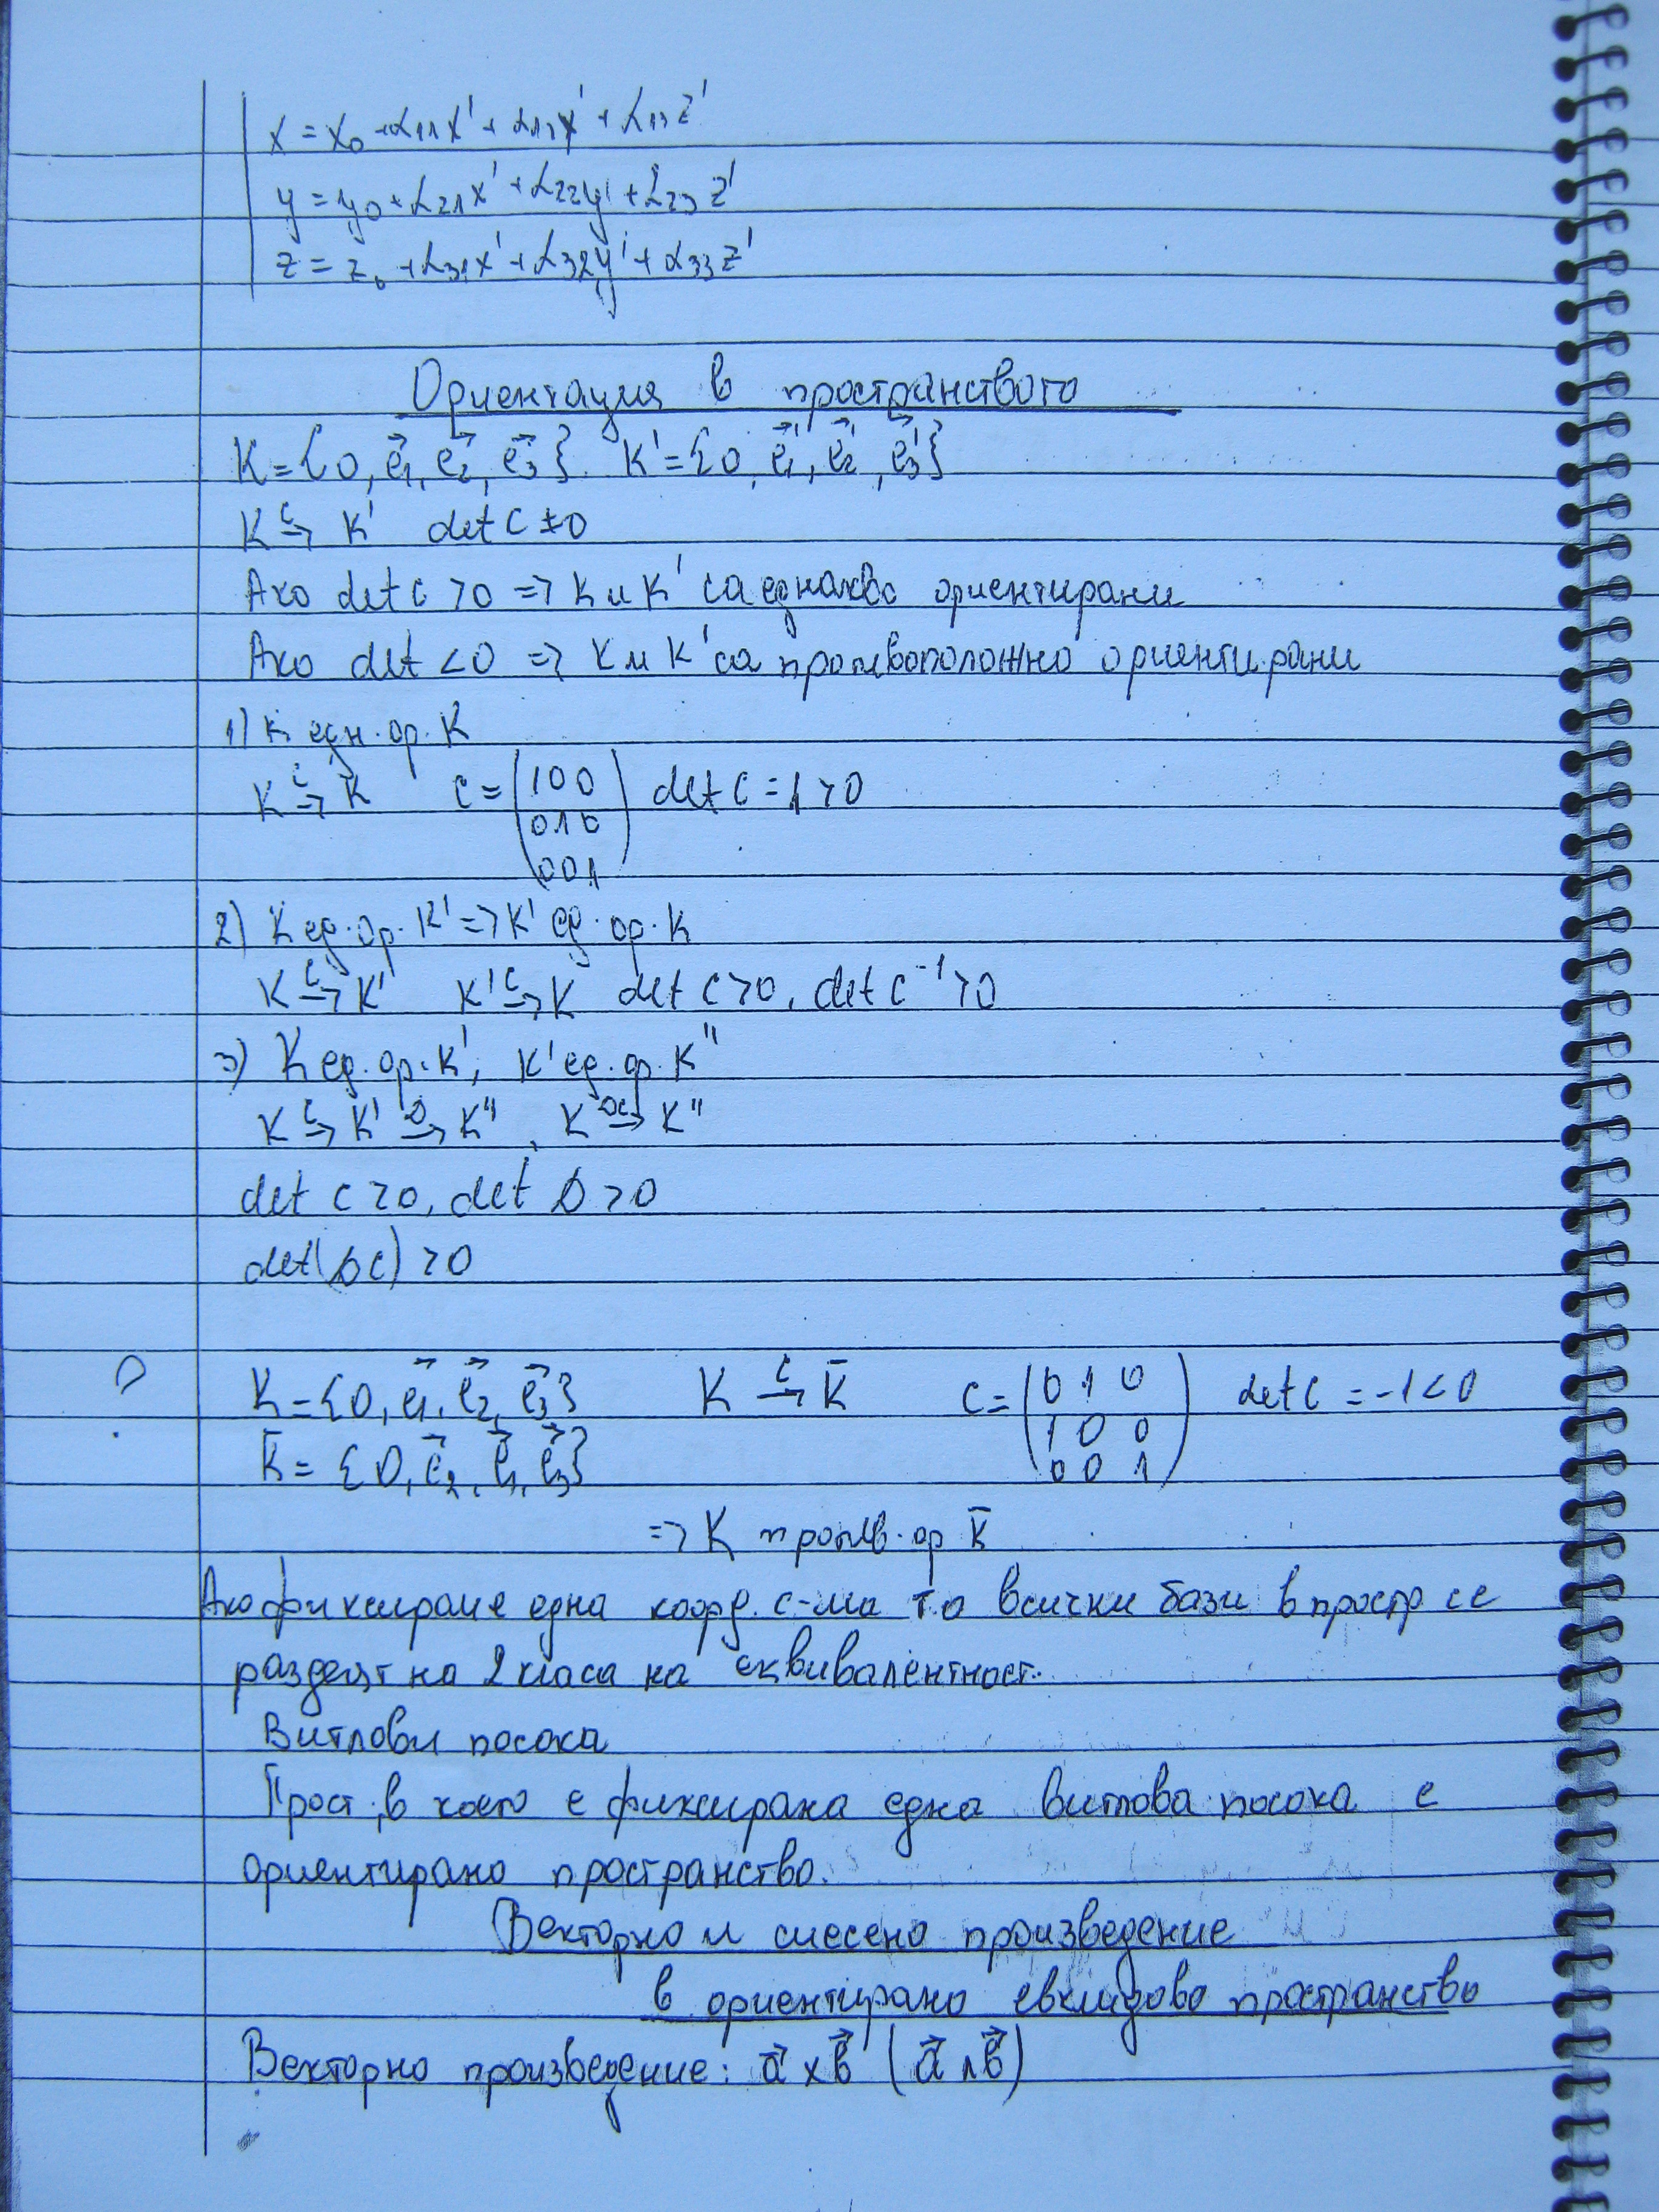 x = x₀ + α₁₁x' + α₁₂x' + α₁₃z'
y = y₀ + α₂₁x' + α₂₂y' + α₂₃z'
z = z₀ + α₃₁x' + α₃₂y' + α₃₃z'
Ориентация в пространството
K = {0, e⃗₁, e⃗₂, e⃗₃} K' = {0, e⃗₁', e⃗₂', e⃗₃'}
K →ᶜ K' det C ≠ 0
Ако det C > 0 => K и K' са еднакво ориентирани
Ако det < 0 => K и K' са противоположно ориентирани
1) K едн. ор. K
K →ᶜ K C = (1 0 0 det C = 1 > 0
0 1 0
0 0 1)
2) K ед. ор. K' => K' ед. ор. K
K →ᶜ K' K' →ᶜ K det C > 0, det C⁻¹ > 0
3) K ед. ор. K', K' ед. ор. K''
K →ᶜ K' →ᴰ K'', K →ᴰᶜ K''
det C > 0, det D > 0
det(DC) > 0
? K = {0, e⃗₁, e⃗₂, e⃗₃} K →ᶜ K̄ C = (0 1 0 det C = -1 < 0
1 0 0
K̄ = {0, e⃗₂, e⃗₁, e⃗₃} 0 0 1)
=> K против. ор K̄
Ако фиксираме една коорд. с-ма то всички бази в простр се
разделят на 2 класа на еквивалентност.
Витлови посока
Прост. в което е фиксирана една витлова посока е
ориентирано пространство.
Векторно и смесено произведение
в ориентирано евклидово пространство
Векторно произведение: a⃗ x b⃗ (a⃗ ∧ b⃗)